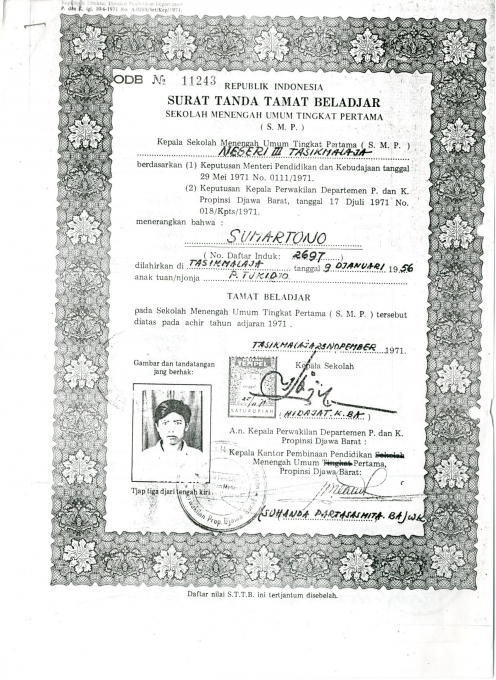 P. dan K. tgl. 30-6-1971 No.
ODB No 11243
REPUBLIK INDONESIA
SURAT TANDA TAMAT BELADJAR
SEKOLAH MENENGAH UMUM TINGKAT PERTAMA
( S. M. P. )
Kepala Sekolah Menengah Umum Tingkat Pertama ( S. M. P. )
NEGERI III TASIKMALAJA
berdasarkan (1) Keputusan Menteri Pendidikan dan Kebudajaan tanggal
29 Mei 1971 No. 0111/1971.
(2) Keputusan Kepala Perwakilan Departemen P. dan K.
Propinsi Djawa Barat, tanggal 17 Djuli 1971 No.
018/Kpts/1971.
menerangkan bahwa :
SUMARTONO
( No. Daftar Induk: 2697 )
dilahirkan di TASIKMALAJA tanggal 9 DJANUARI 1956
anak tuan/njonja P. TUMIDJO
TAMAT BELADJAR
pada Sekolah Menengah Umum Tingkat Pertama ( S. M. P. ) tersebut
diatas pada achir tahun adjaran 1971 .
TASIKMALAJA 25 NOPEMBER 1971.
Kepala Sekolah
Gambar dan tandatangan
jang berhak:
TEMPEL
SATURUPIAH
( HIDAJAT. K. BA )
A.n. Kepala Perwakilan Departemen P. dan K.
Propinsi Djawa Barat :
Kepala Kantor Pembinaan Pendidikan Sekolah
Menengah Umum Tingkat Pertama,
Propinsi Djawa Barat:
Tjap tiga djari tengah kiri
Prop. Djawa
(SUHANDA PARTASASMITA. BA)
Daftar nilai S.T.T.B. ini tertjantum disebelah.